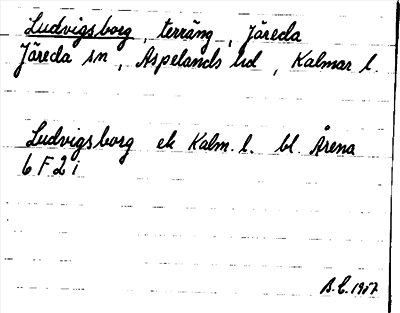 Ludvigsborg, terräng, Järeda
Järeda sn, Aspelands hd, Kalmar l.
Ludvigsborg ek Kalm. l. bl. Årena
6 F 2 i
B.E. 1957